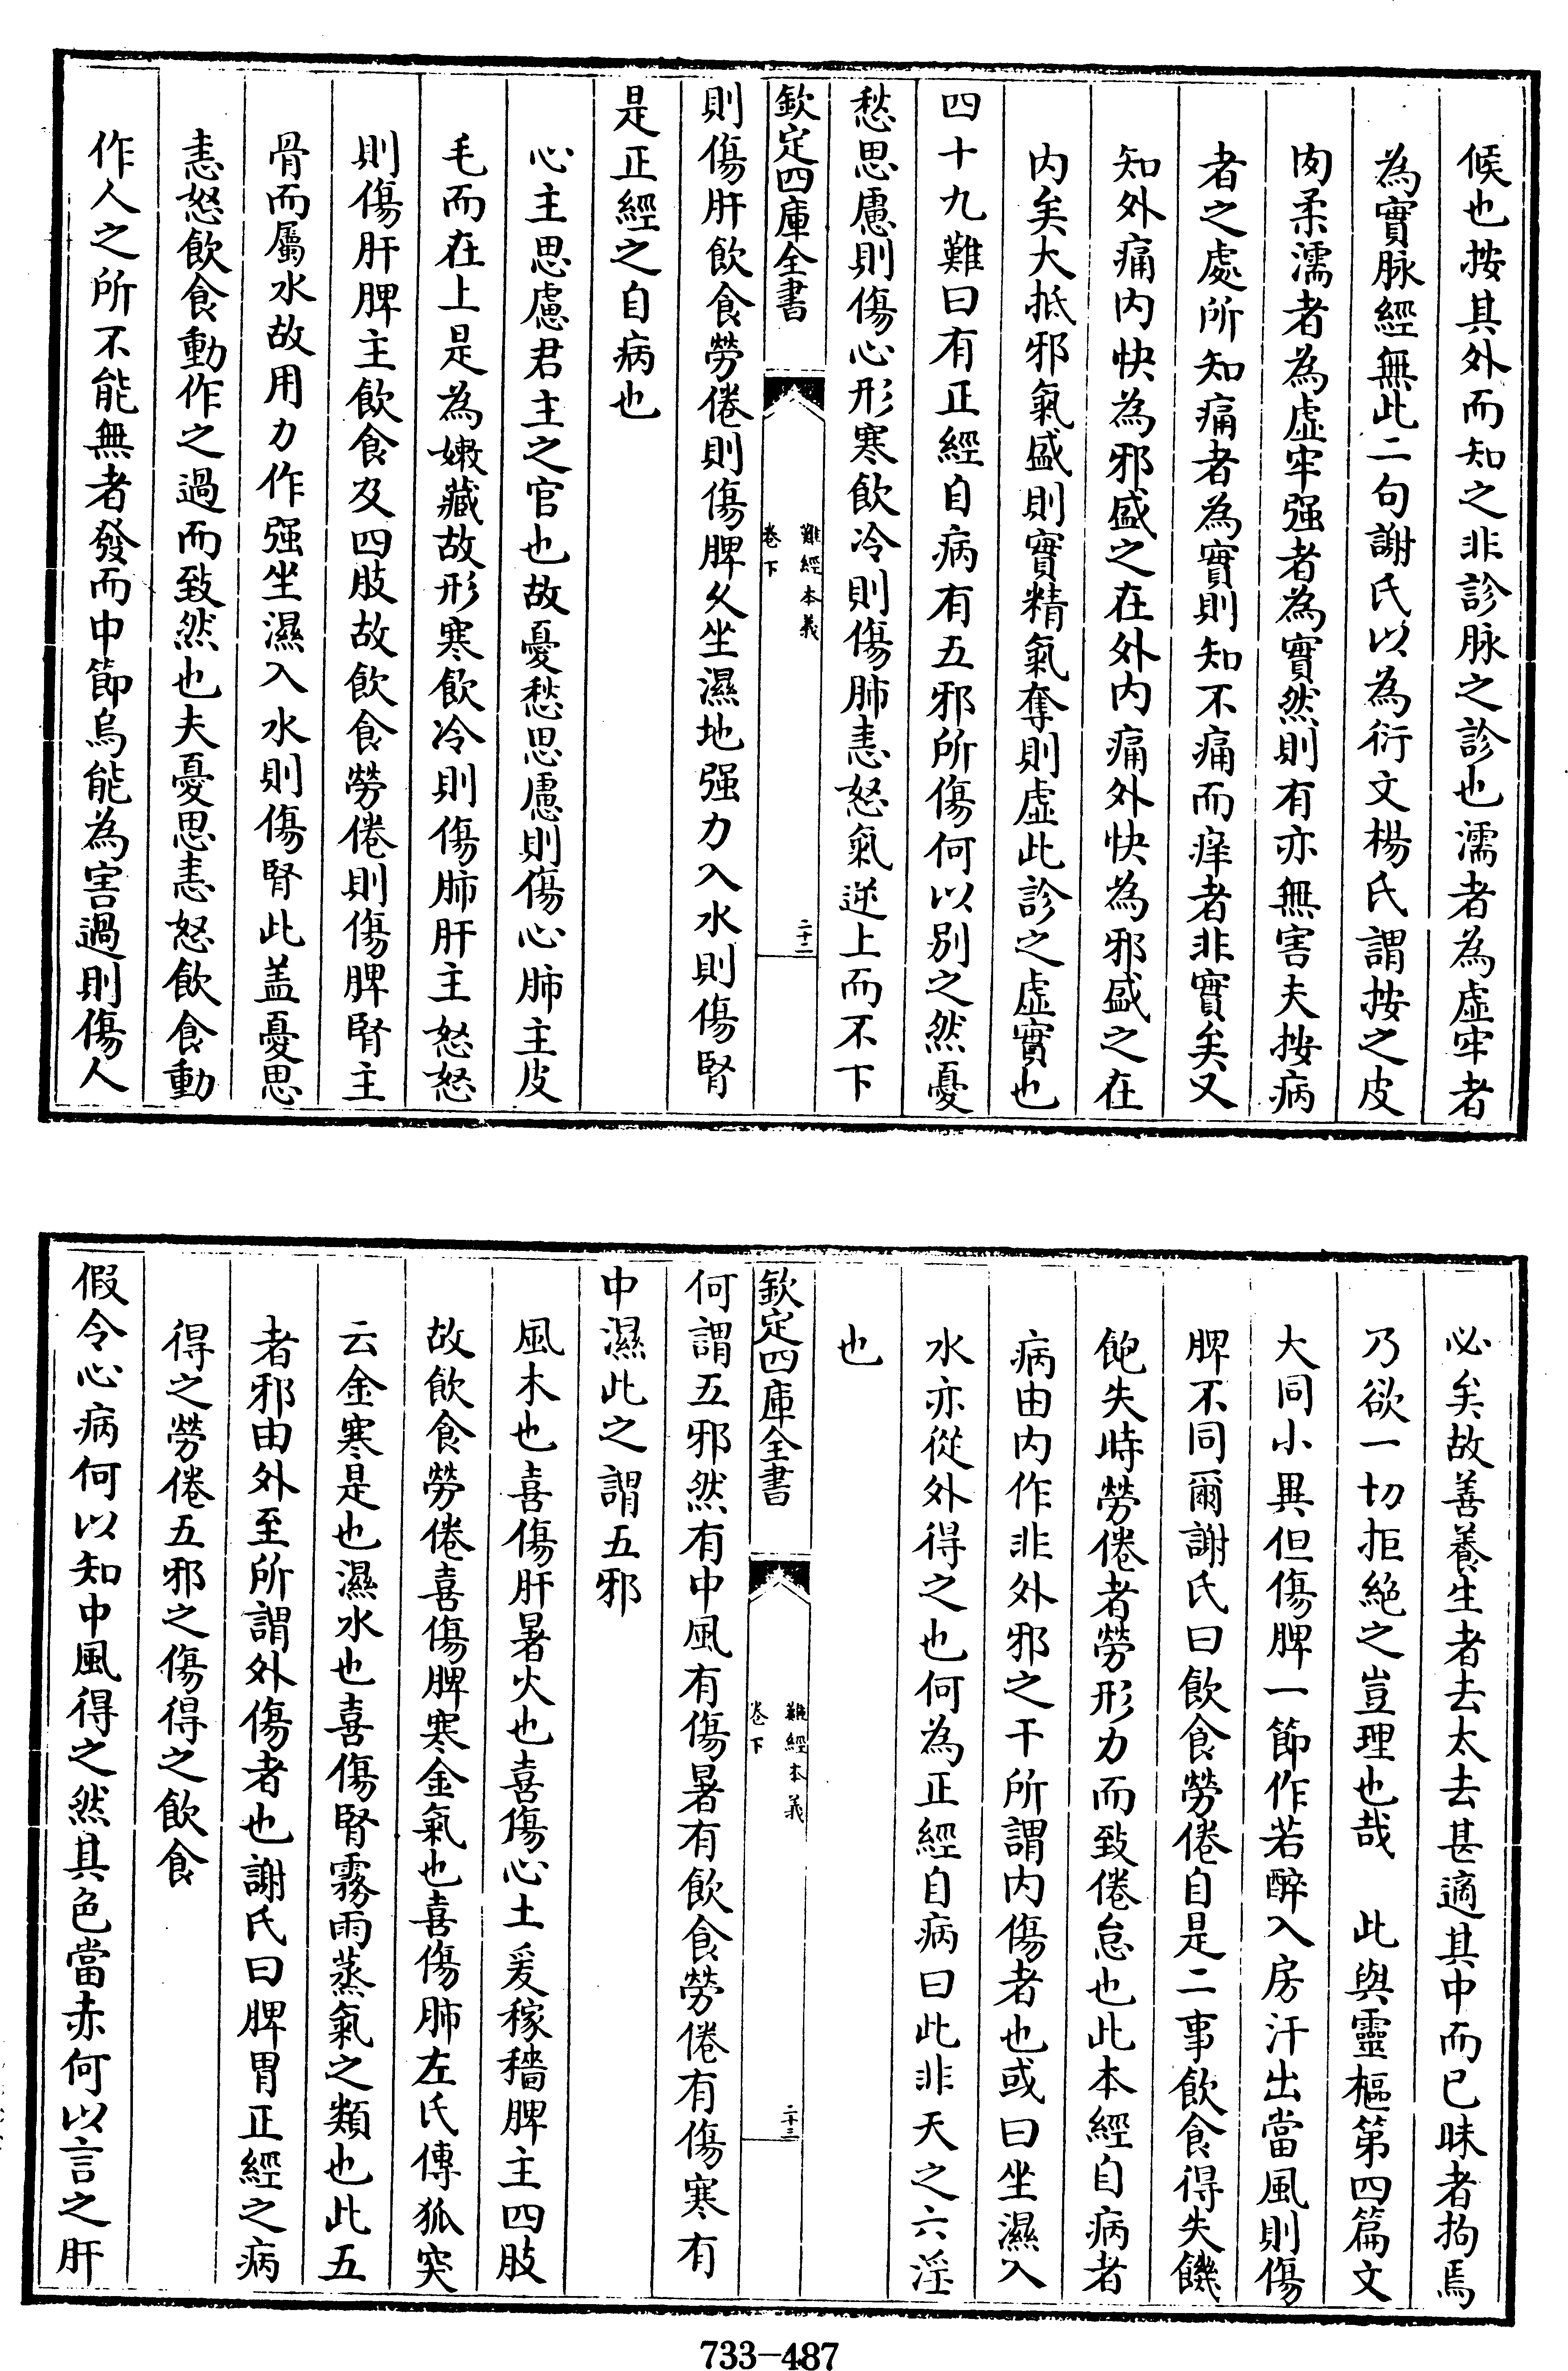 候也按其外而知之非診脉之診也濡者為虚牢者
為實脉經無此二句謝氏以為衍文楊氏謂按之皮
肉柔濡者為虚牢强者為實然則有亦無害夫按病
者之處所知痛者為實則知不痛而痒者非實矣又
知外痛内快為邪盛之在外内痛外快為邪盛之在
内矣大抵邪氣盛則實精氣奪則虚此診之虚實也
四十九難曰有正經自病有五邪所傷何以别之然憂
愁思慮則傷心形寒飲冷則傷肺恚怒氣逆上而不下
欽定四庫全書
難經本義
卷下
二十二
則傷肝飲食勞倦則傷脾久坐濕地强力入水則傷腎
是正經之自病也
心主思慮君主之官也故憂愁思慮則傷心肺主皮
毛而在上是為嫩藏故形寒飲冷則傷肺肝主怒怒
則傷肝脾主飲食及四肢故飲食勞倦則傷脾腎主
骨而屬水故用力作强坐濕入水則傷腎此盖憂思
恚怒飲食動作之過而致然也夫憂思恚怒飲食動
作人之所不能無者發而中節烏能為害過則傷人
必矣故善養生者去太去甚適其中而已昧者拘焉
乃欲一切拒絶之豈理也哉　此與靈樞第四篇文
大同小異但傷脾一節作若醉入房汗出當風則傷
脾不同爾謝氏曰飲食勞倦自是二事飲食得失饑
飽失時勞倦者勞形力而致倦怠也此本經自病者
病由内作非外邪之干所謂内傷者也或曰坐濕入
水亦從外得之也何為正經自病曰此非天之六淫
也
欽定四庫全書
難經本義
卷下
二十三
何謂五邪然有中風有傷暑有飲食勞倦有傷寒有
中濕此之謂五邪
風木也喜傷肝暑火也喜傷心土爰稼穡脾主四肢
故飲食勞倦喜傷脾寒金氣也喜傷肺左氏傳狐突
云金寒是也濕水也喜傷腎霧雨蒸氣之類也此五
者邪由外至所謂外傷者也謝氏曰脾胃正經之病
得之勞倦五邪之傷得之飲食
假令心病何以知中風得之然其色當赤何以言之肝
733-487